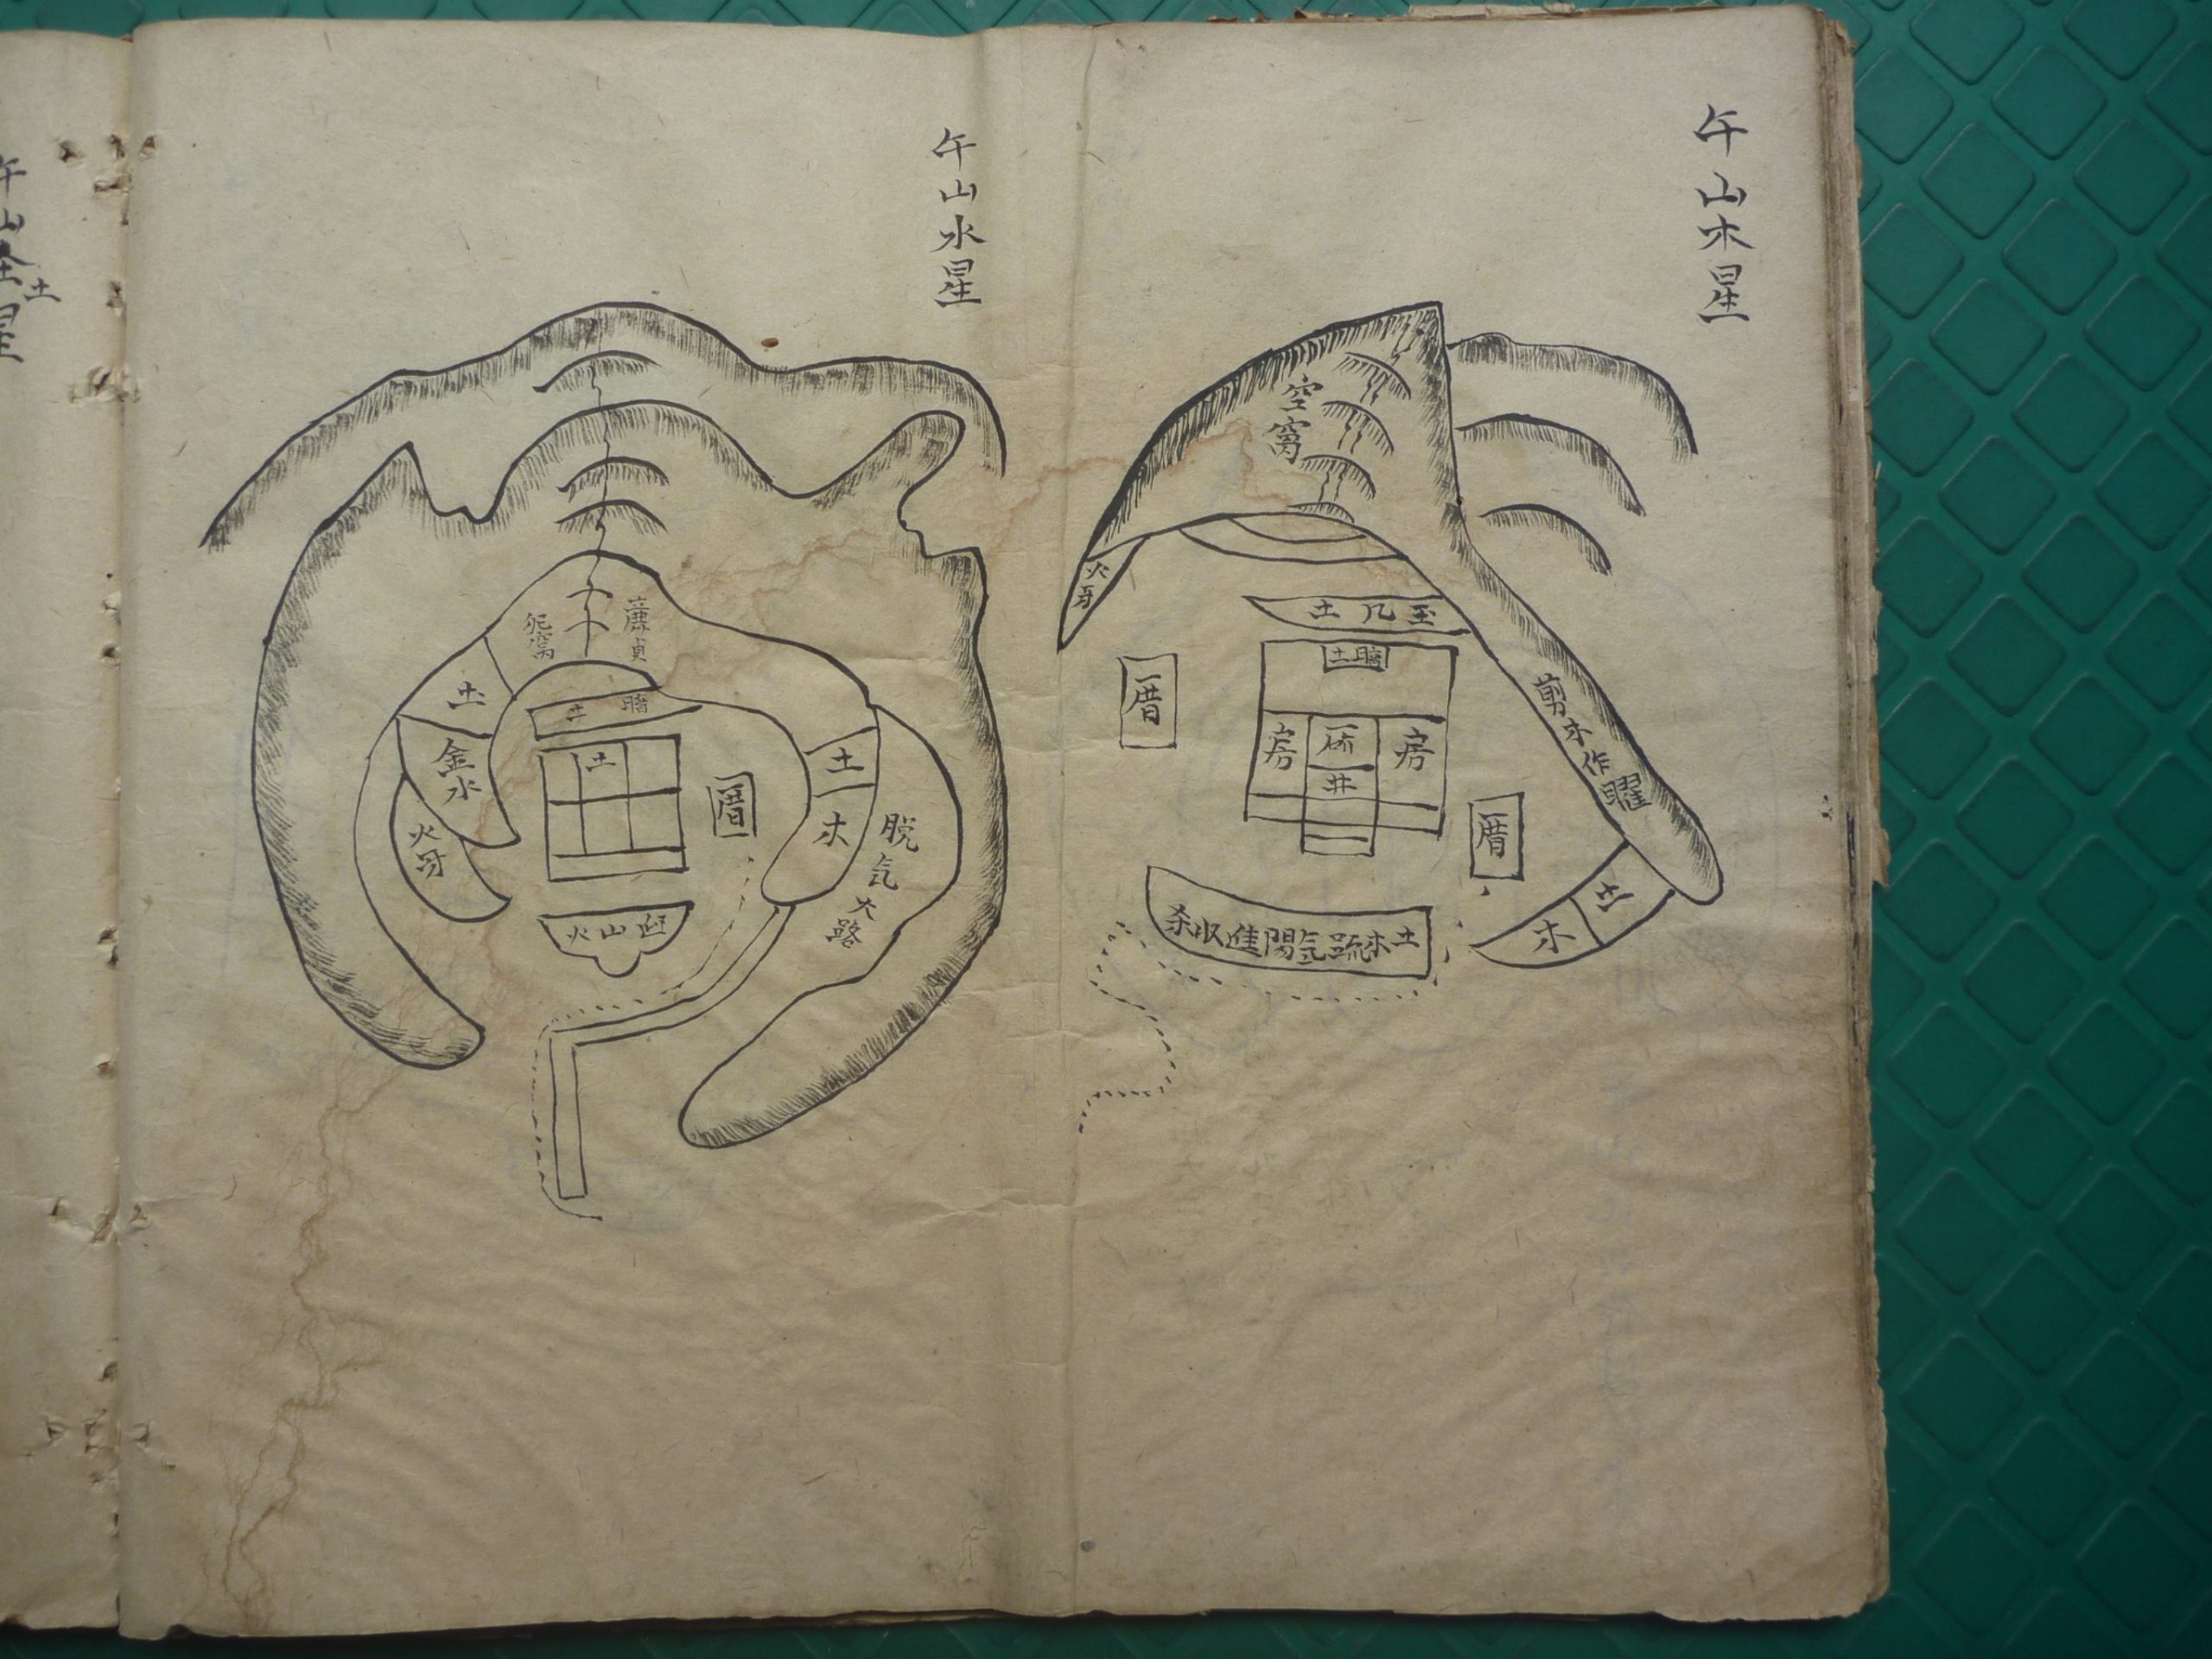 午山木星
空窝
火牙
土几玉
土暗
房
井
房
厝
厝
剪木作曜
土
木
杀收進陽氣疏木土
午山水星
廉貞
窩
土
土暗
土
金水
火牙
厝
土
木
脱气大路
火山
午山金土星